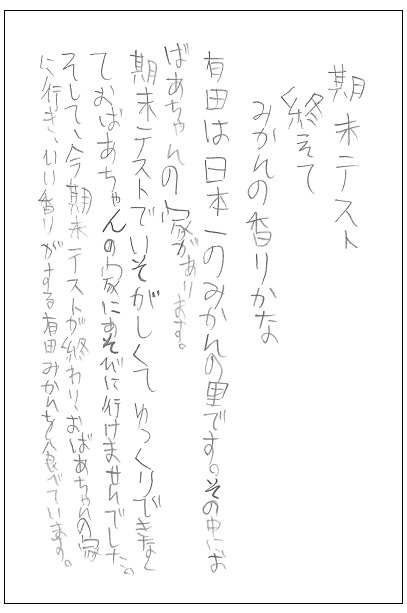 期末テスト
終えて
みかんの香りかな
有田は日本一のみかんの里です。その中にお
ばあちゃんの家があります。
期末テストでいそがしくてゆっくりできなく
ておばあちゃんの家にあそびに行けませんでした。
そして、今期末テストが終わり、おばあちゃんの家
に行き、いい香りがする有田みかんを食べています。